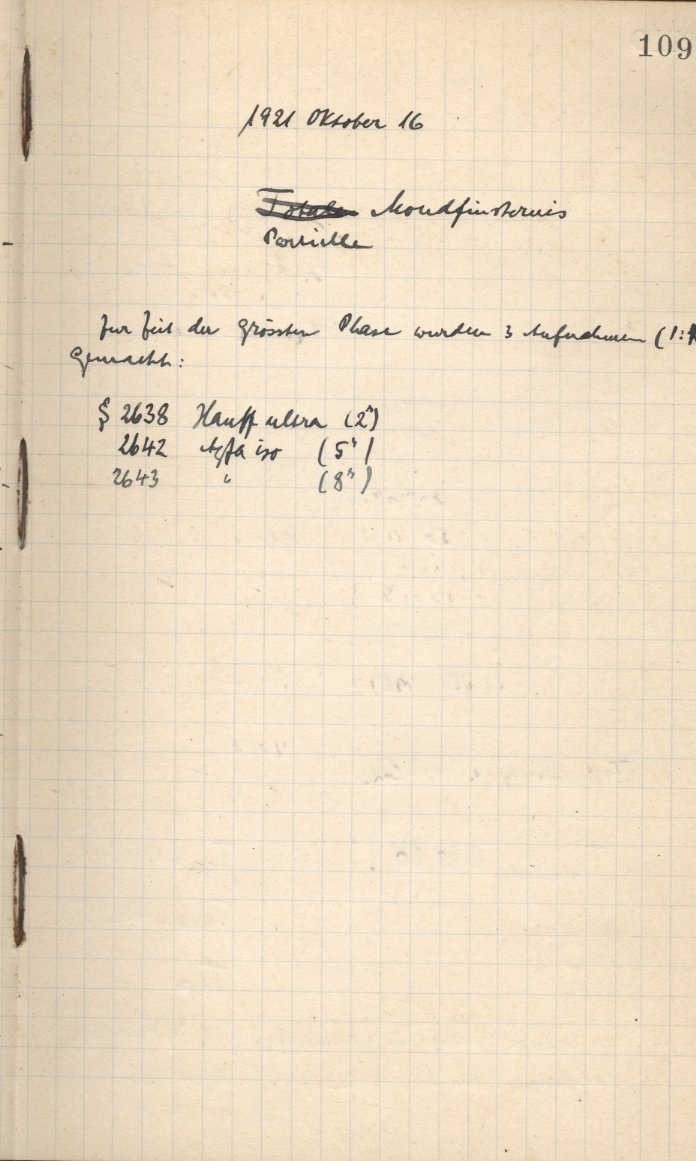 109
1921 Oktober 16
Totale Mondfinsternis
Partielle
Zur Zeit der grössten Phase wurden 3 Aufnahmen (1:
gemacht:
§ 2638 Hauff ultra (2")
2642 Agfa iso (5")
2643 " (8")